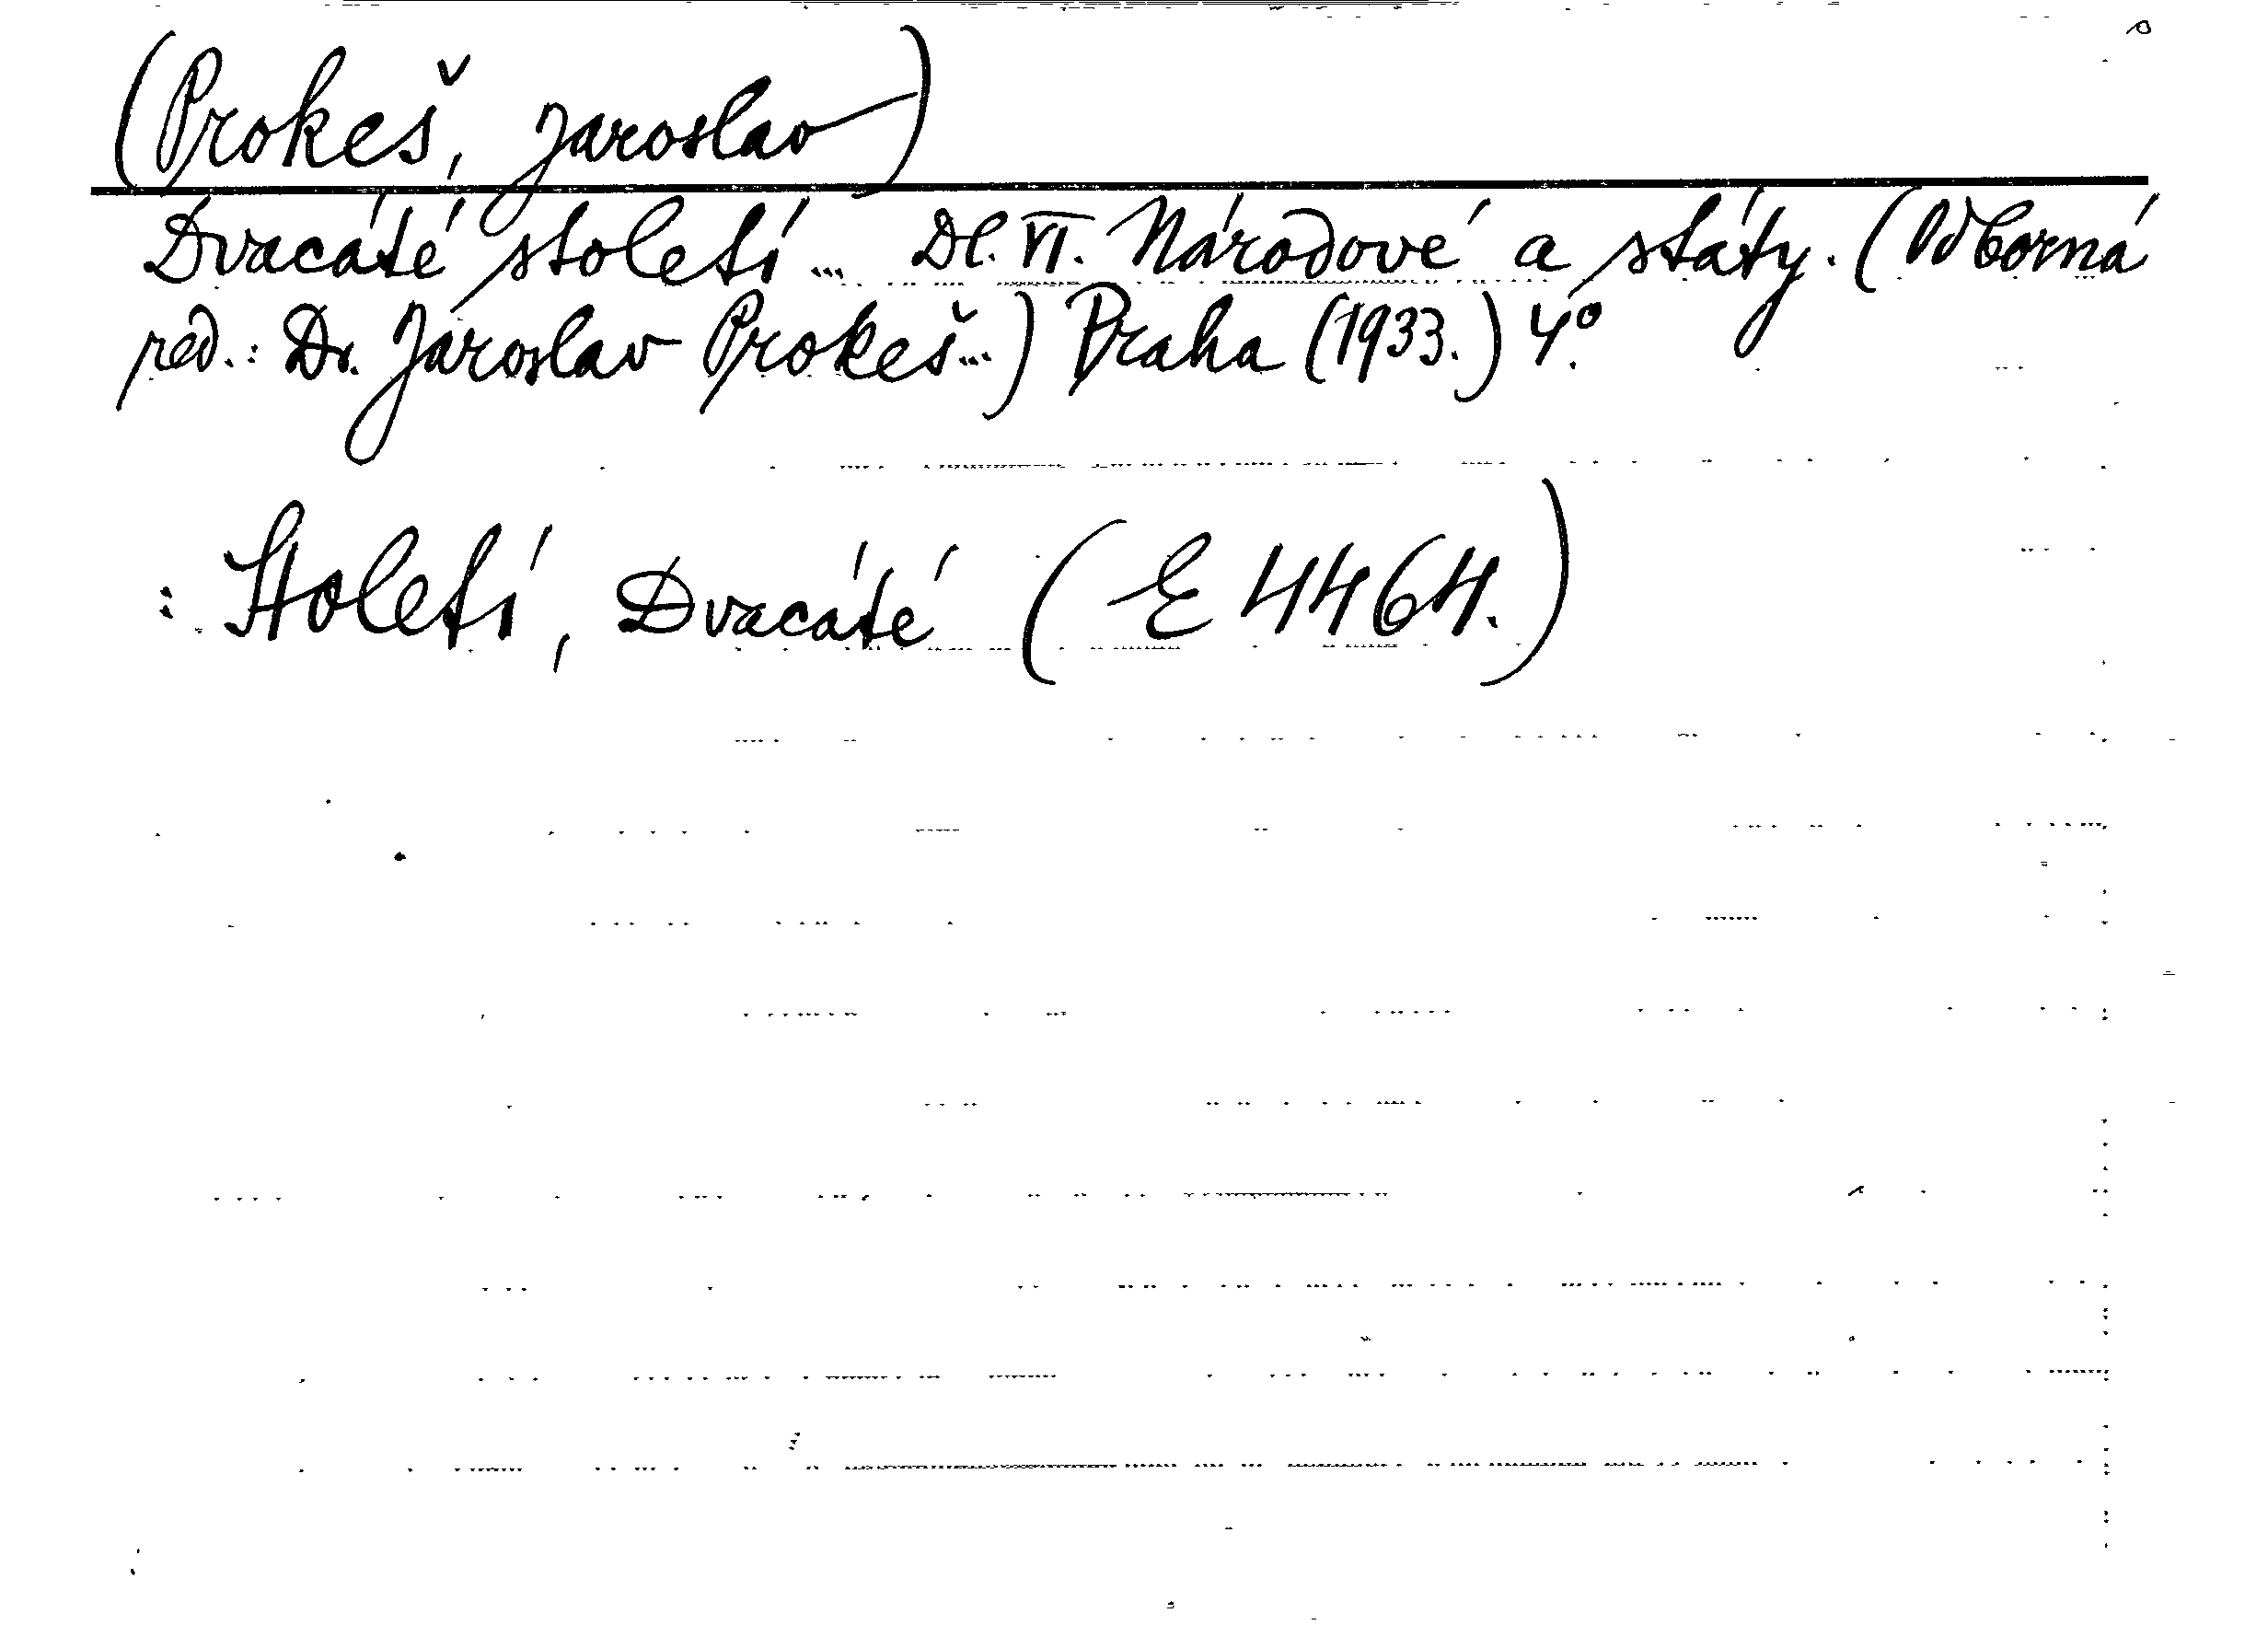 (Prokeš, Jaroslav)
Dvacáté století... Dl. VI. Národové a státy. (Odborná
red.: Dr. Jaroslav Prokeš...) Praha (1933.) 4°.
: Století, Dvacáté (E 4464.)